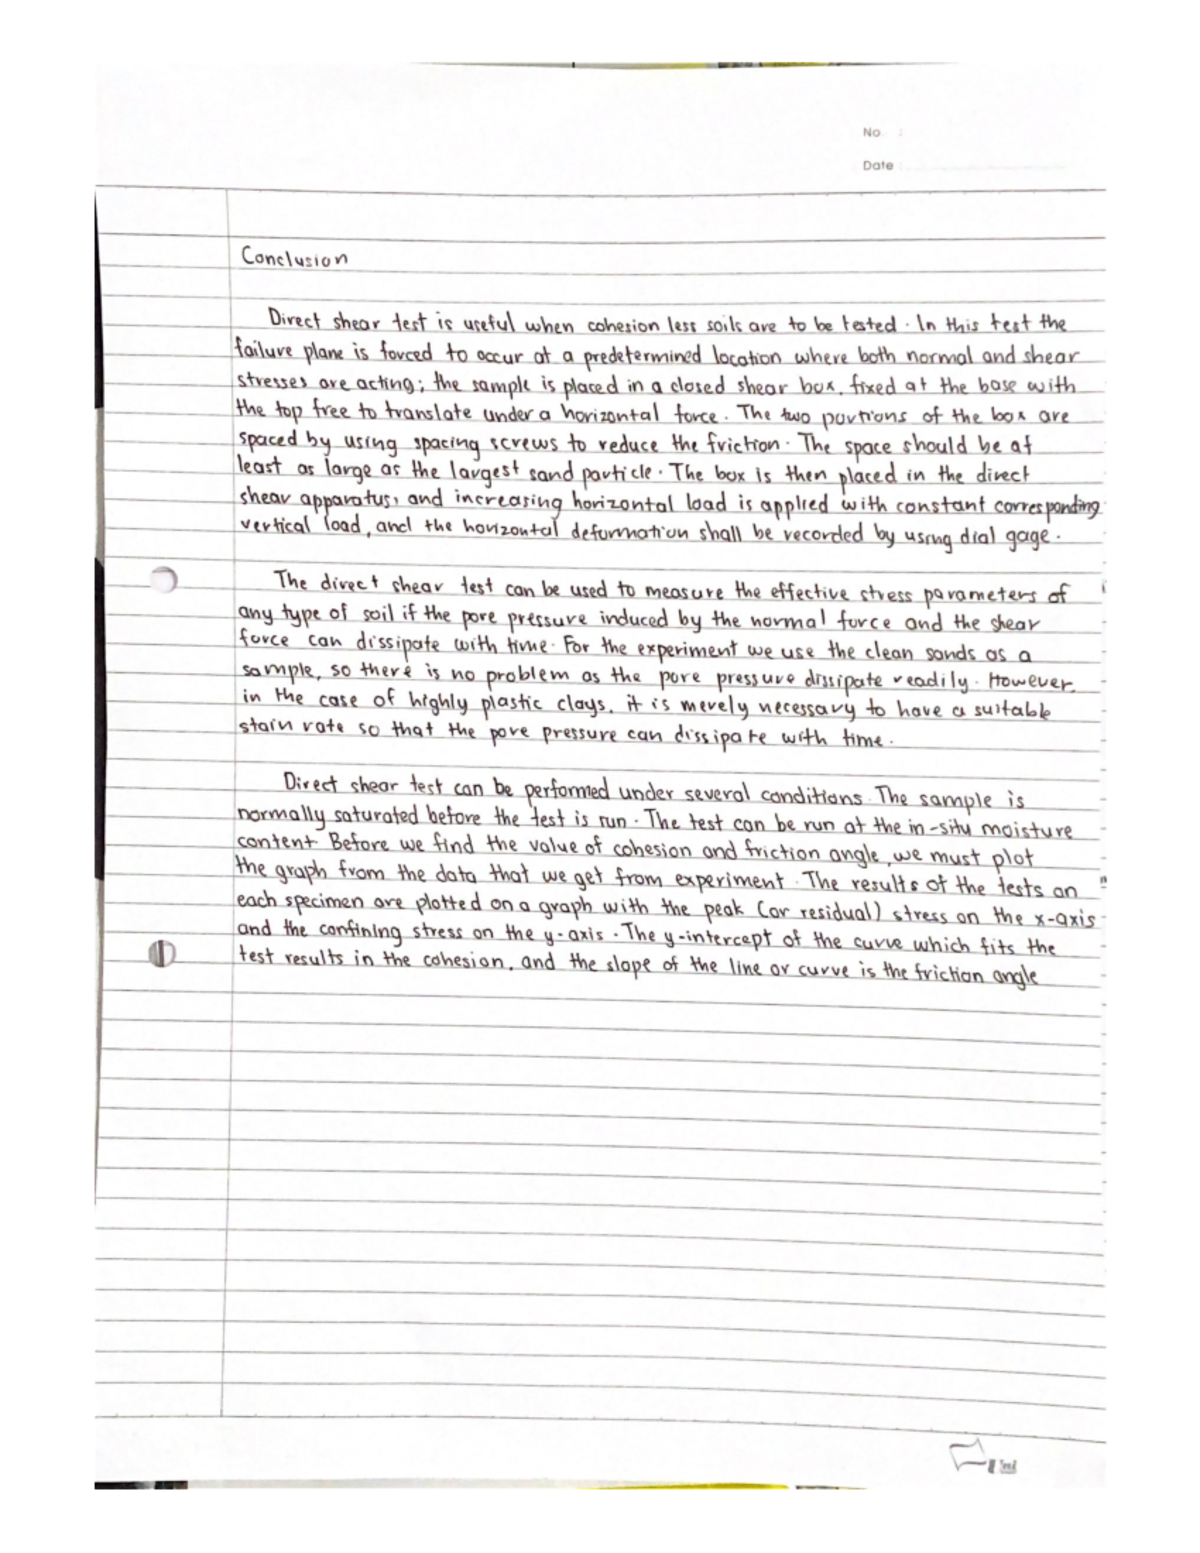 No :
Date :
Conclusion
Direct shear test is useful when cohesion less soils are to be tested. In this test the
failure plane is forced to occur at a predetermined location where both normal and shear
stresses are acting; the sample is placed in a closed shear box, fixed at the base with
the top free to translate under a horizontal force. The two portions of the box are
spaced by using spacing screws to reduce the friction. The space should be at
least as large as the largest sand particle. The box is then placed in the direct
shear apparatus, and increasing horizontal load is applied with constant corresponding
vertical load, and the horizontal deformation shall be recorded by using dial gage.
The direct shear test can be used to measure the effective stress parameters of
any type of soil if the pore pressure induced by the normal force and the shear
force can dissipate with time. For the experiment we use the clean sands as a
sample, so there is no problem as the pore pressure dissipate readily. However,
in the case of highly plastic clays, it is merely necessary to have a suitable
stain rate so that the pore pressure can dissipate with time.
Direct shear test can be performed under several conditions. The sample is
normally saturated before the test is run. The test can be run at the in-situ moisture
content. Before we find the value of cohesion and friction angle, we must plot
the graph from the data that we get from experiment. The results of the tests on
each specimen are plotted on a graph with the peak (or residual) stress on the x-axis
and the confining stress on the y-axis. The y-intercept of the curve which fits the
test results in the cohesion, and the slope of the line or curve is the friction angle